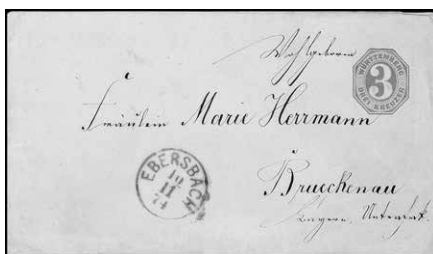 Wohlgeboren
WÜRTTEMBERG
3
DREI KREUZER
Fräulein Marie Herrmann
EBERSBACH
10
11
74
Brueckenau
Bayern. Unterfrk.